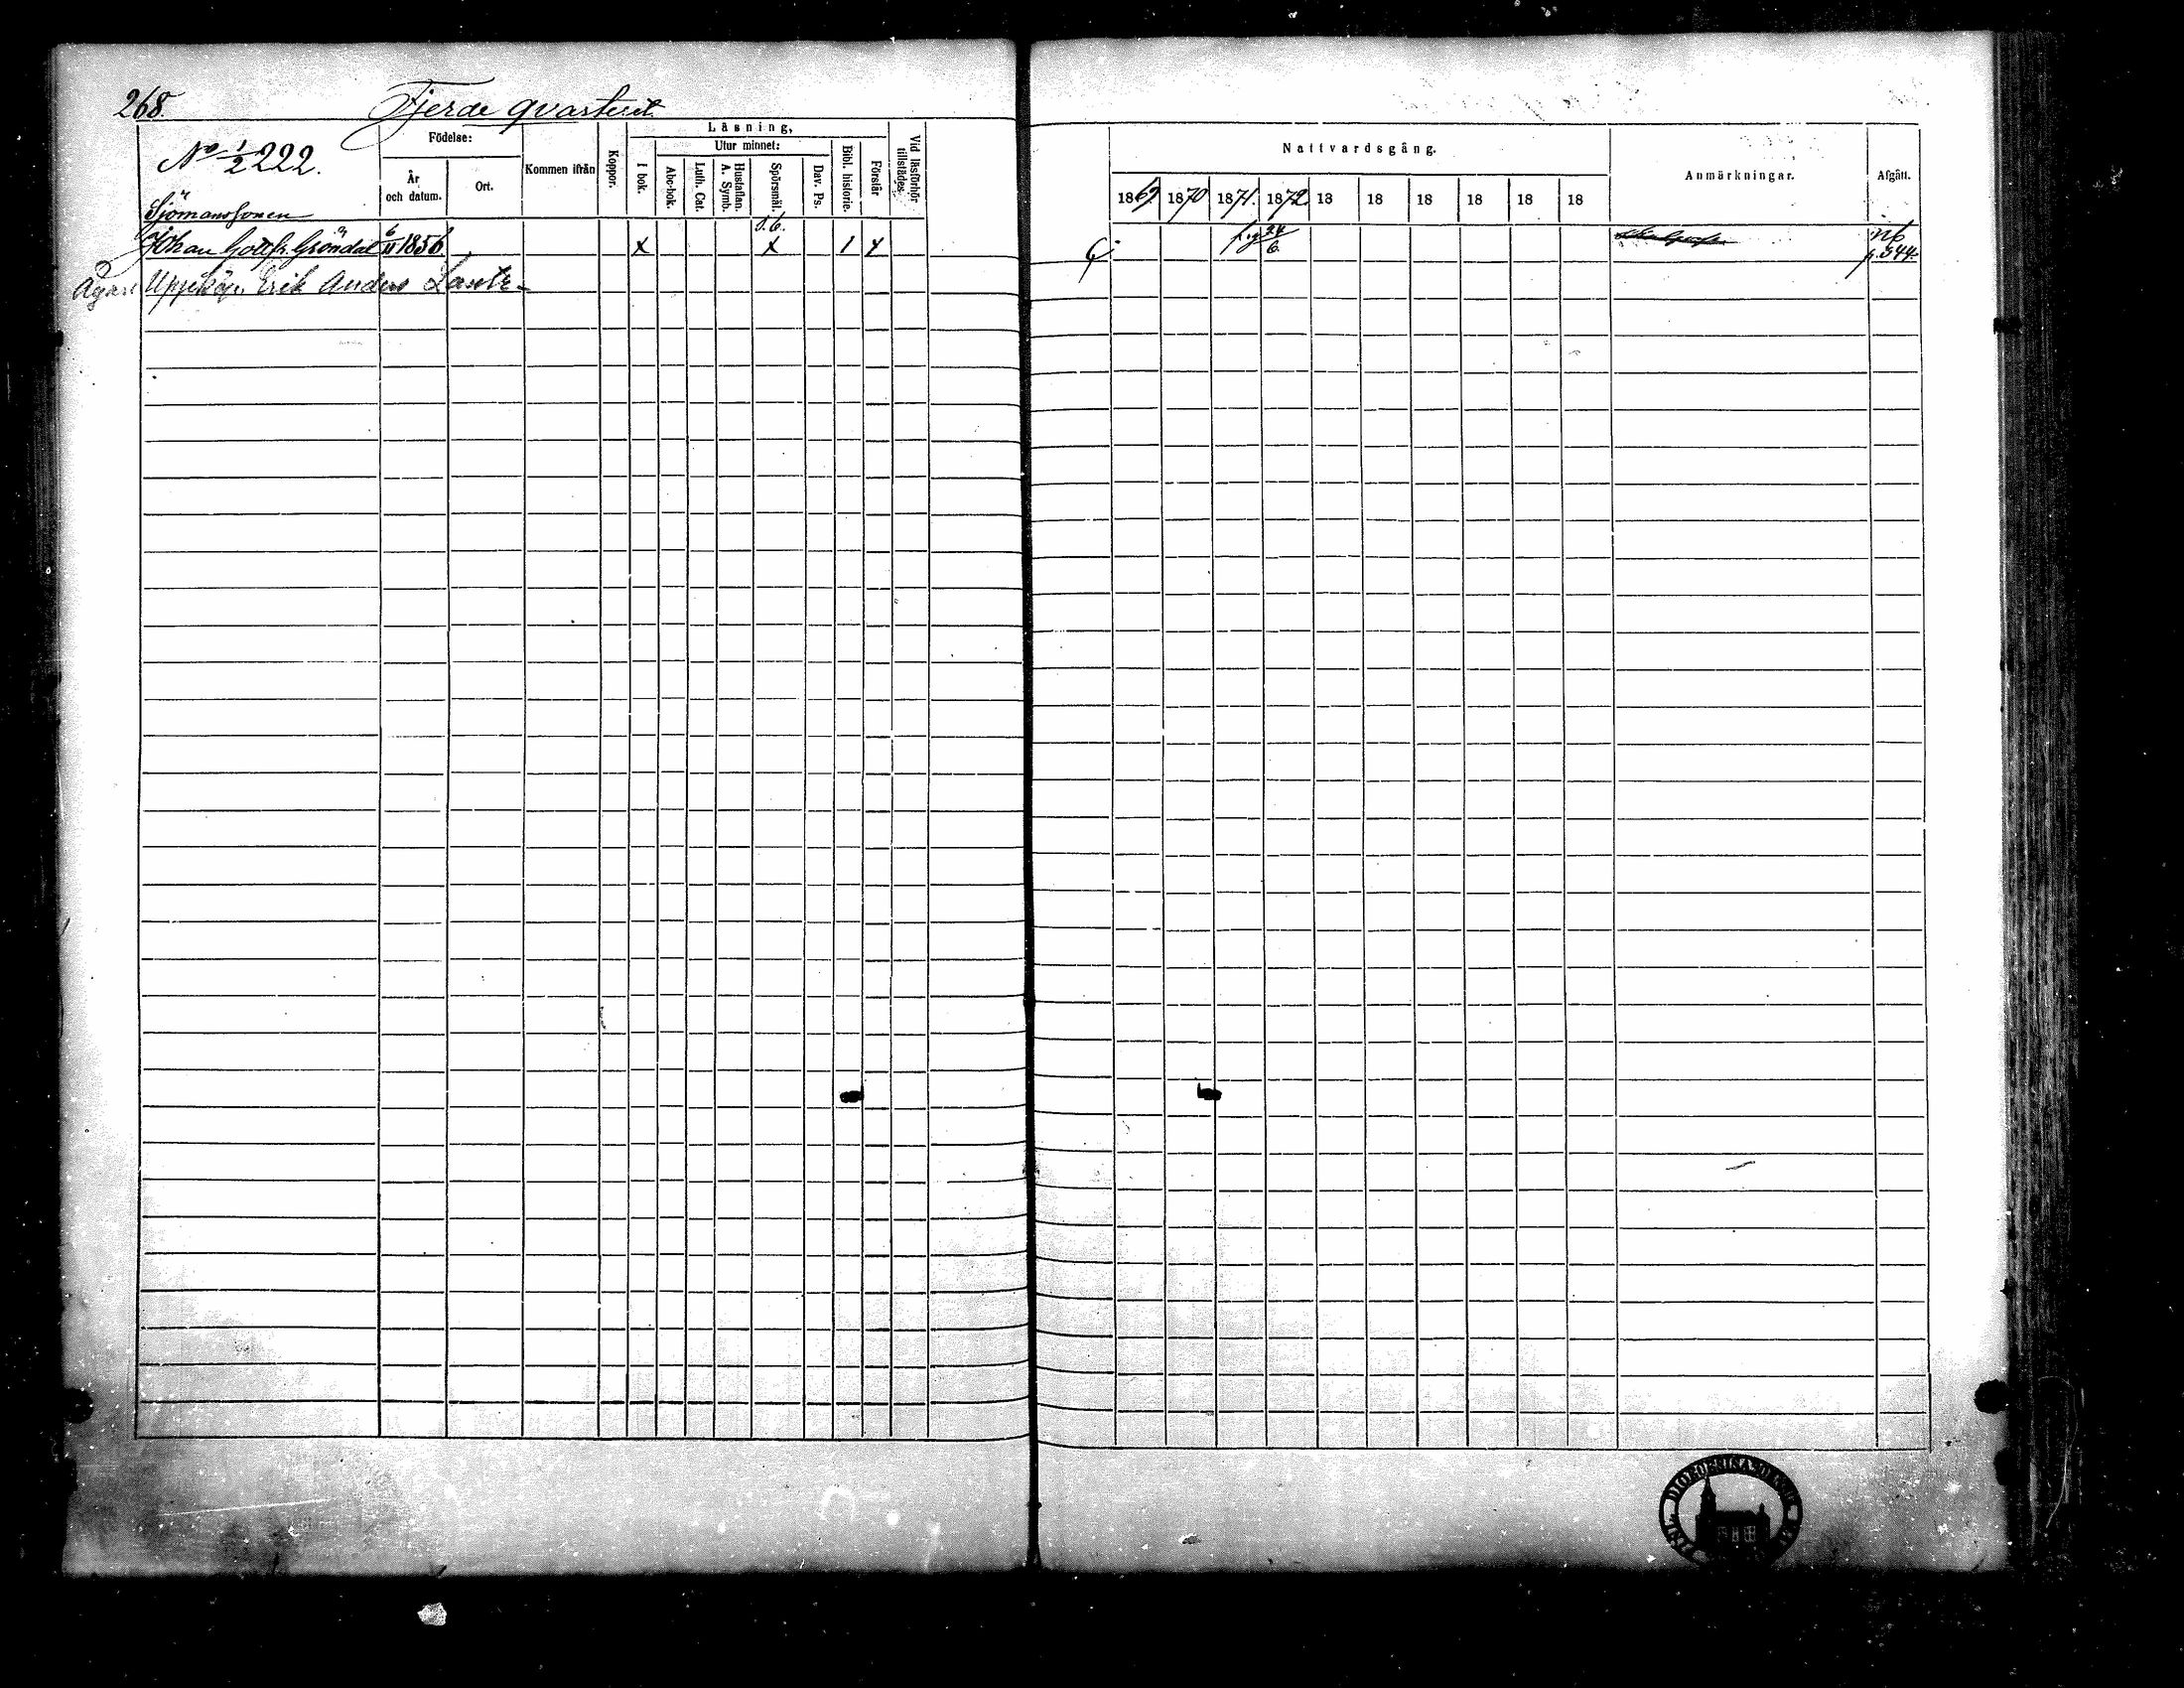 268.
Fjerde qvarteret
No 1/2 222.
Födelse:
År och datum.
Ort.
Kommen ifrån
Koppor.
Läsning,
I bok.
Utur minnet:
Abc-bok.
Luth. Cat.
Hustaflan. A. Symb.
Spörsmål.
Dav. Ps.
Bibl. historie.
Förstår
Vid läsförhör tillstädes.
Nattvardsgång.
1869 1870 1871. 1872 18 18 18 18 18 18
Anmärkningar.
Afgått.
Sjömanssonen
Johan Gottfr. Gröndal 6/11 1856 x s.b. x 1 x 24/6 p. 344.
Ägare Uppköp. Erik Anders